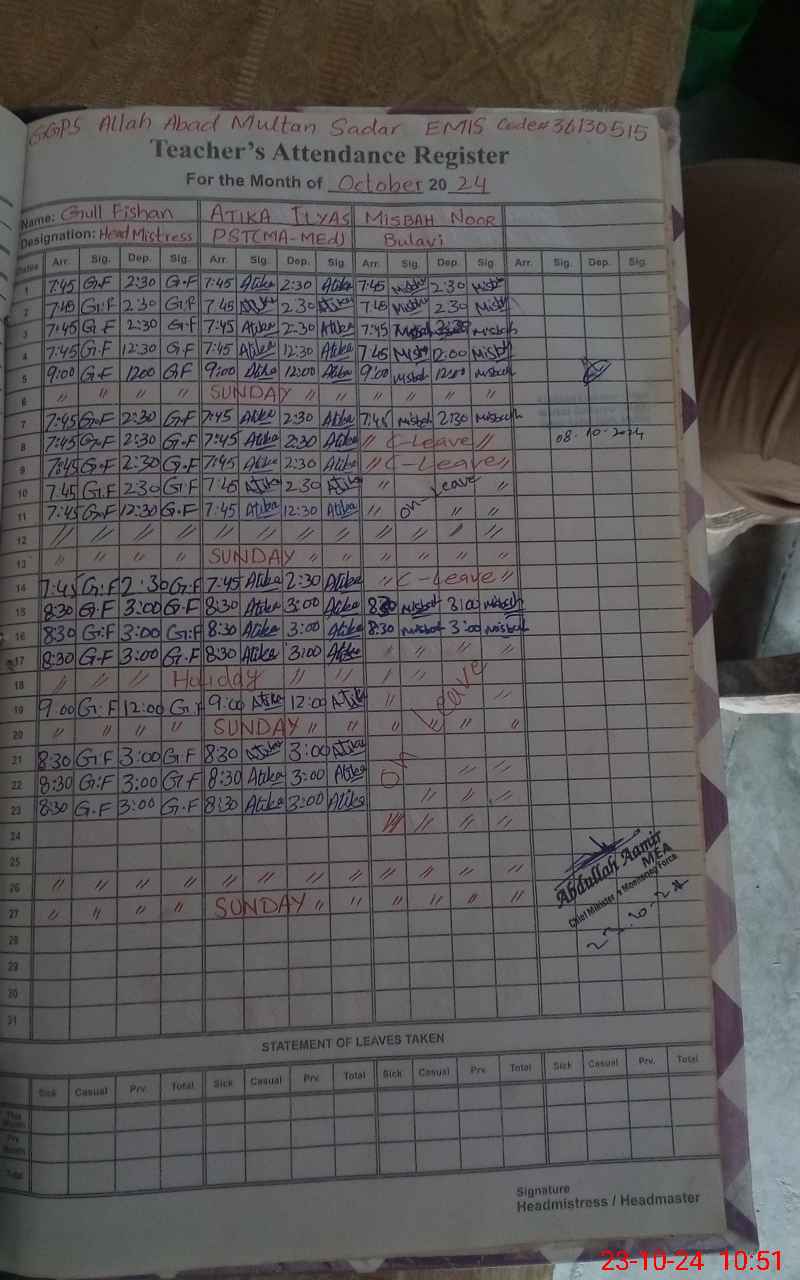 GGPS Allah Abad Multan Sadar EMIS Code# 36130515
Teacher's Attendance Register
For the Month of October 20 24
Name: Gull Fishan ATIKA ILYAS MISBAH NOOR
Designation: Head Mistress PST(MA-MEd) Bulavi
Dates Arr. Sig. Dep. Sig. Arr. Sig. Dep. Sig. Arr. Sig. Dep. Sig. Arr. Sig. Dep. Sig.
1 7:45 G.F 2:30 G.F 7:45 Atika 2:30 Atika 7:45 Misbah 2:30 Misbah
2 7:45 G.F 2:30 G.F 7:45 Atika 2:30 Atika 7:45 Misbah 2:30 Misbah
3 7:45 G.F 2:30 G.F 7:45 Atika 2:30 Atika 7:45 Misbah misbah
4 7:45 G.F 12:30 G.F 7:45 Atika 12:30 Atika 7:45 Misbah 12:00 Misbah
5 9:00 G.F 1200 G.F 9:00 Atika 12:00 Atika 9:00 misbah 12:00 misbah
6 " " " " SUNDAY " " " " " "
7 7:45 G.F 2:30 G.F 7:45 Atika 2:30 Atika 7:45 misbah 2:30 misbah
8 7:45 G.F 2:30 G.F 7:45 Atika 2:30 Atika " C-Leave " 08-10-2024
9 7:45 G.F 2:30 G.F 7:45 Atika 2:30 Atika " C-Leave "
10 7:45 G.F 2:30 G.F 7:45 Atika 2:30 Atika " on-Leave "
11 7:45 G.F 12:30 G.F 7:45 Atika 12:30 Atika " " "
12 " " " " " " " " " " " "
13 " " " " SUNDAY " " " " " "
14 7:45 G.F 2:30 G.F 7:45 Atika 2:30 Atika " C-Leave "
15 8:30 G.F 3:00 G.F 8:30 Atika 3:00 Atika 8:30 misbah 3:00 misbah
16 8:30 G.F 3:00 G.F 8:30 Atika 3:00 Atika 8:30 misbah 3:00 misbah
17 8:30 G.F 3:00 G.F 8:30 Atika 3:00 Atika " " " "
18 " " " Holiday " " " "
19 9:00 G.F 12:00 G.F 9:00 Atika 12:00 Atika " on Leave " "
20 " " " " SUNDAY " " " " " "
21 8:30 G.F 3:00 G.F 8:30 Atika 3:00 Atika
22 8:30 G.F 3:00 G.F 8:30 Atika 3:00 Atika " "
23 8:30 G.F 3:00 G.F 8:30 Atika 3:00 Atika " " "
24 " " " "
25
26 " " " " " " " " " " " "
27 " " " " SUNDAY " " " " " "
Abdullah Aamir
MEA
Chief Minister's Monitoring Force
28
29
30
31
STATEMENT OF LEAVES TAKEN
Sick Casual Prv. Total Sick Casual Prv. Total Sick Casual Prv. Total Sick Casual Prv. Total
This Month
Prv Month
Total
Signature
Headmistress / Headmaster
23-10-24 10:51